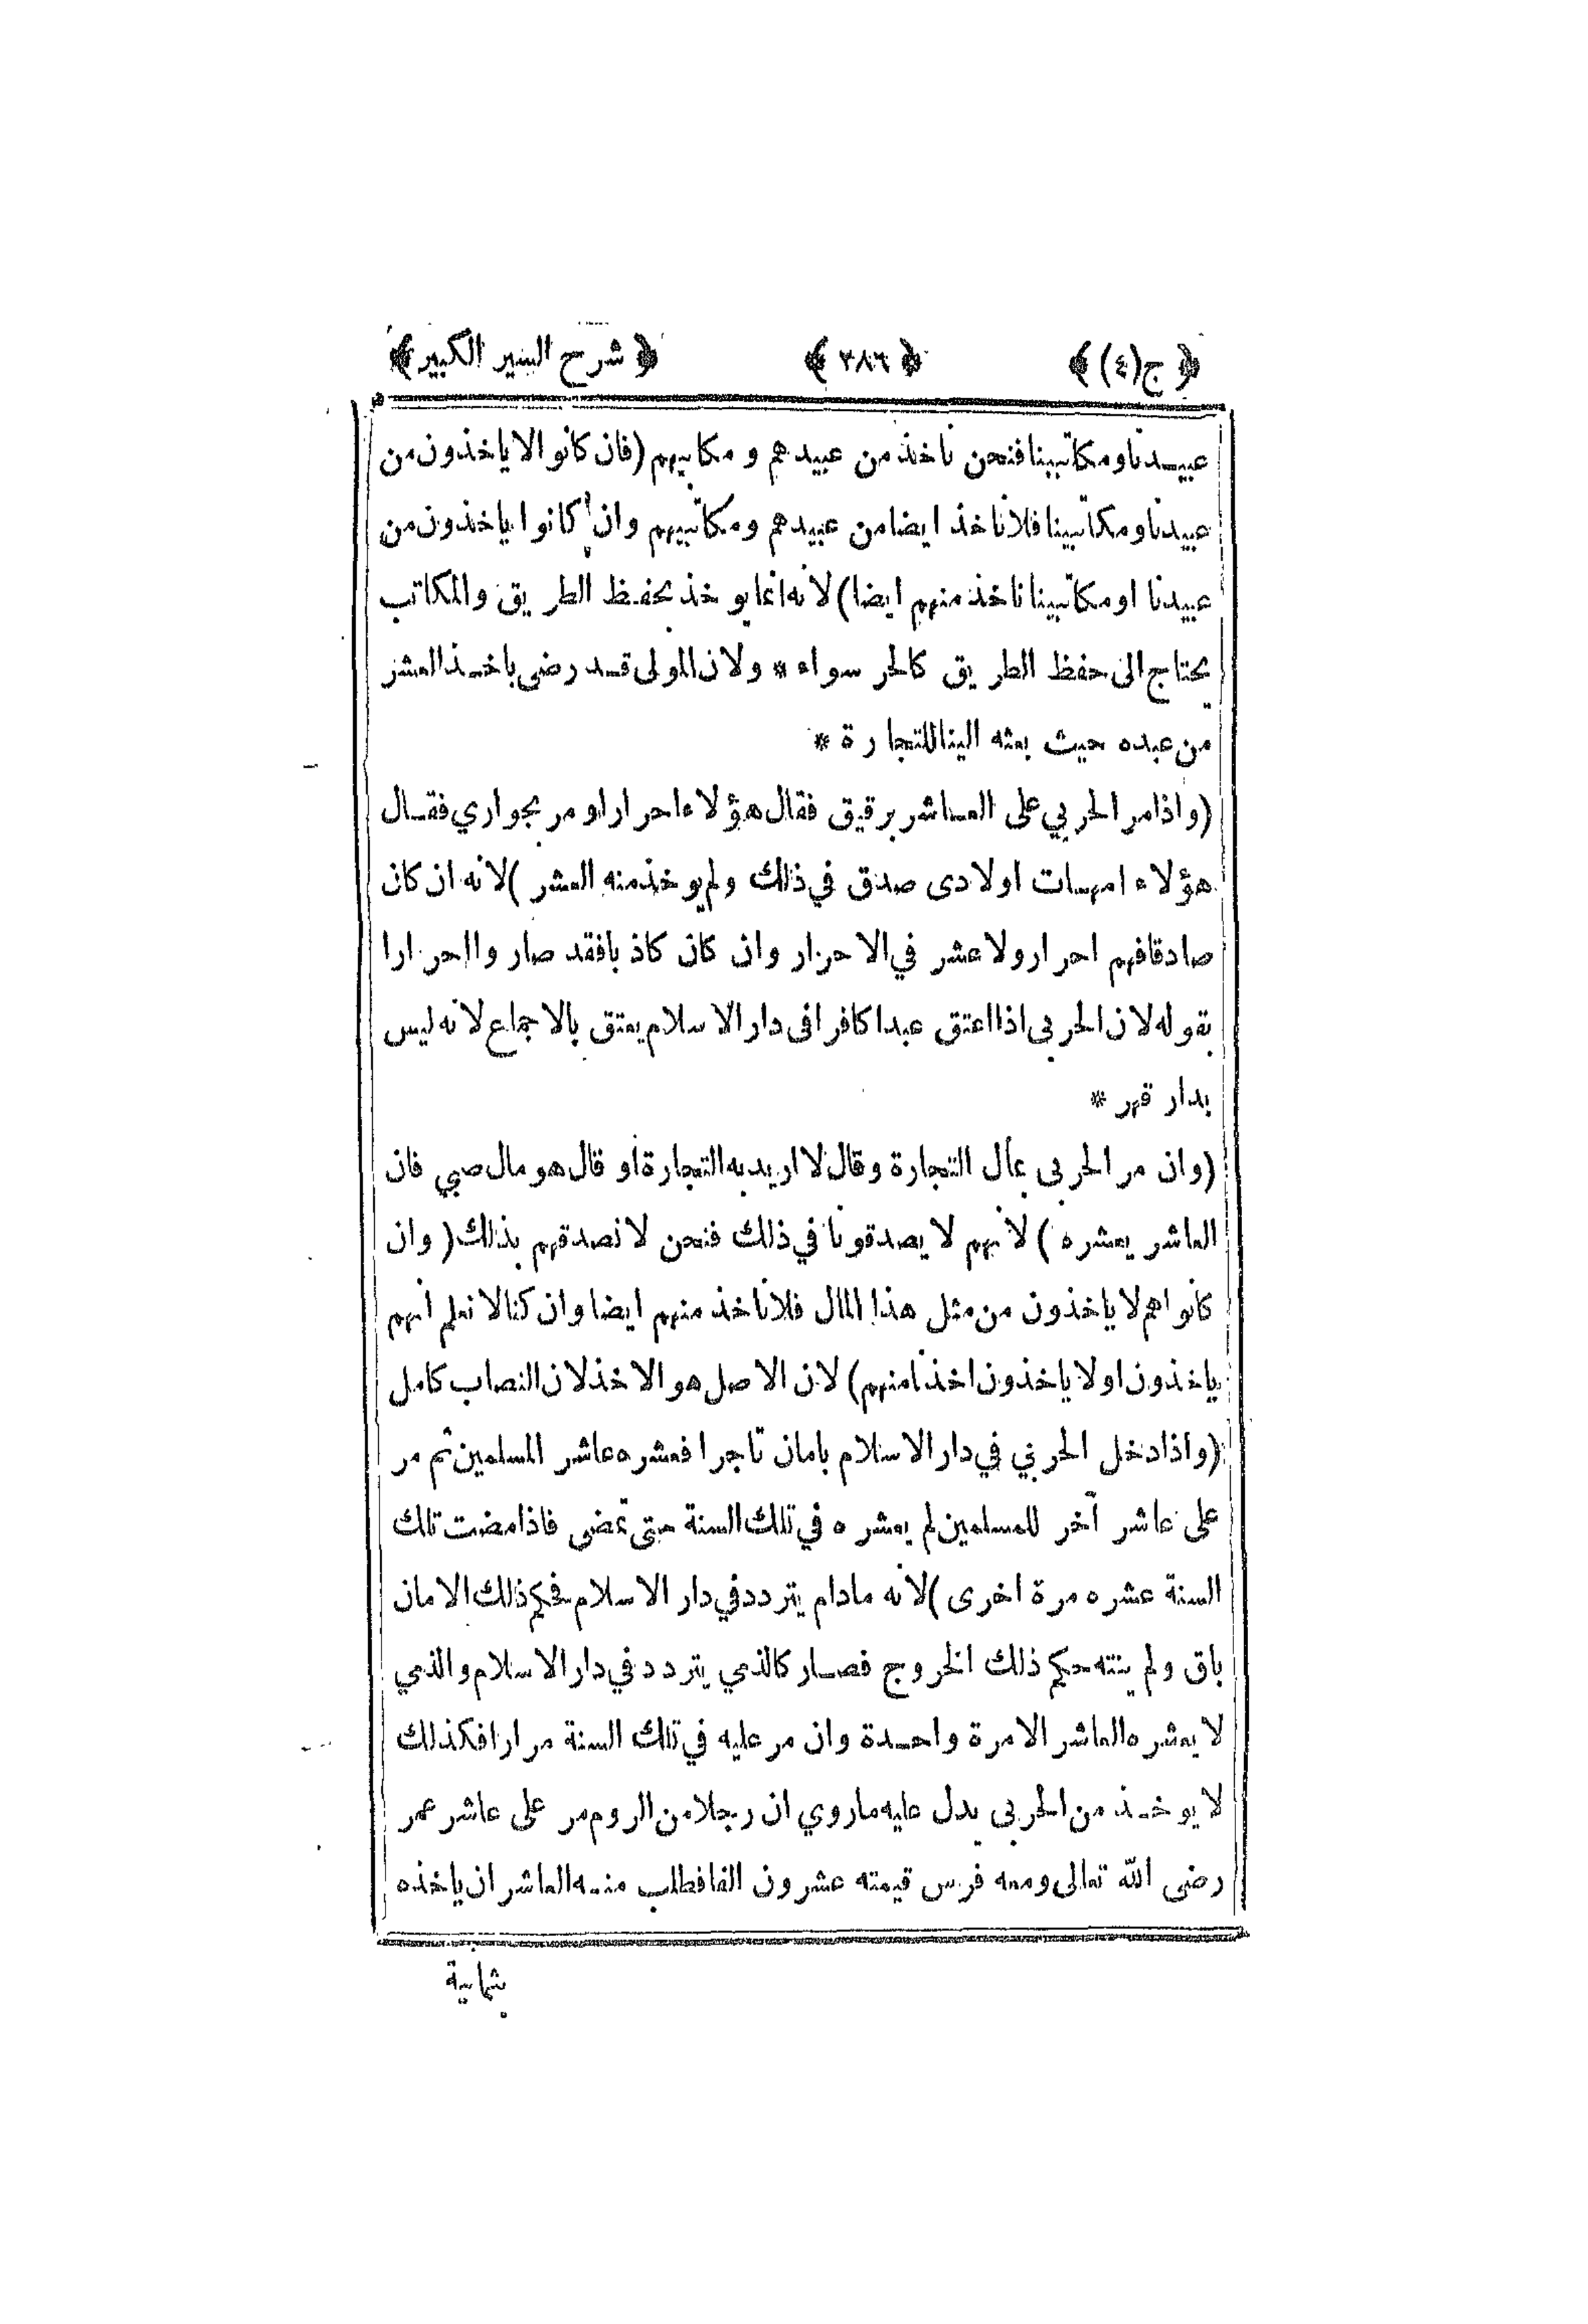 ﴿ ج(٤) ﴾ ﴿ ٢٨٦ ﴾ ﴿ شرح السير الكبير ﴾
عبيدنا ومكاتبينا فنحن ناخذ من عبيدهم و مكاتبيهم (فان كانوا لا ياخذون من
عبيدنا ومكاتبينا فلا ناخذ ايضا من عبيدهم ومكاتبيهم وان كانوا ياخذون من
عبيدنا او مكاتبينا ناخذ منهم ايضا) لانه انما يوخذ بحفظ الطريق والمكاتب
يحتاج الى حفظ الطريق كالحر سواء * ولان المولى قد رضى باخذ العشر
من عبده حيث بعثه الينا للتجارة *
(واذا مر الحربي على العاشر برقيق فقال هؤلاء احرار او مر بجواري فقال
هؤلاء امهات اولادى صدق في ذلك ولم يوخذ منه العشر) لانه ان كان
صادقا فهم احرار ولا عشر في الاحرار وان كان كاذبا فقد صاروا احرارا
بقوله لان الحربى اذا اعتق عبدا كافرا فى دار الاسلام يعتق بالاجماع لانه ليس
بدار قهر *
(وان مر الحربى بمال التجارة وقال لا اريد به التجارة او قال هو مال صبي فان
العاشر يعشره) لانهم لا يصدقونا في ذلك فنحن لا نصدقهم بذلك (وان
كانوا هم لا ياخذون من مثل هذا المال فلا ناخذ منهم ايضا وان كنا لا نعلم انهم
ياخذون او لا ياخذون اخذنا منهم) لان الاصل هو الاخذ لان النصاب كامل
(واذا دخل الحربي في دار الاسلام بامان تاجرا فعشره عاشر المسلمين ثم مر
على عاشر آخر للمسلمين لم يعشره في تلك السنة حتى تمضى فاذا مضت تلك
السنة عشره مرة اخرى) لانه مادام يتردد في دار الاسلام فحكم ذلك الامان
باق ولم ينته حكم ذلك الخروج فصار كالذمي يتردد في دار الاسلام والذمي
لا يعشره العاشر الا مرة واحدة وان مر عليه في تلك السنة مرارا فكذلك
لا يوخذ من الحربى يدل عليه ماروي ان رجلا من الروم مر على عاشر عمر
رضى الله تعالى ومعه فرس قيمته عشرون الفا فطلب منه العاشر ان ياخذه
بثمانية